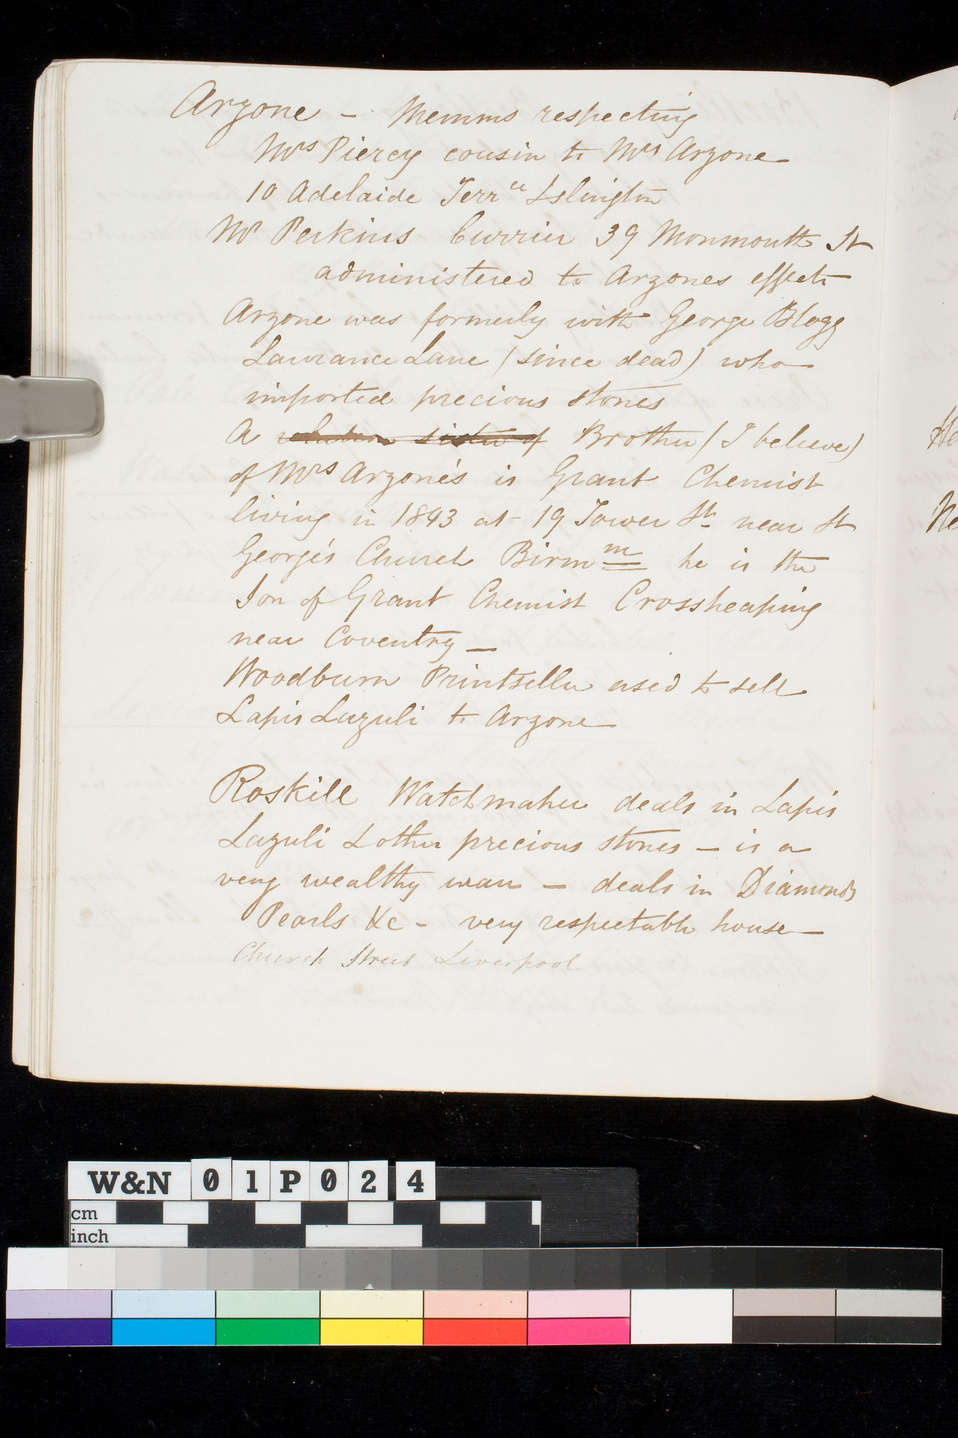 Arzone - Memms respecting
Mrs Piercy cousin to Mrs Arzone
10 Adelaide Terrce Islington
Mr Perkins Currier 39 Monmouth St
administered to Arzones effects
Arzone was formerly with George Blogg
Lawrance Lane (since dead) who
imported precious stones
A sister of Brother (I believe)
of Mrs Arzone's is Grant Chemist
living in 1843 at 19 Tower St near St
George's Church Birmm he is the
Son of Grant Chemist Crossheaping
near Coventry -
Woodburn Printseller used to sell
Lapis Lazuli to Arzone
Roskill Watchmaker deals in Lapis
Lazuli & other precious stones - is a
very wealthy man - deals in Diamonds
Pearls &c - very respectable house
Church Street Liverpool
He
Ne
W&N 01P024
cm
inch